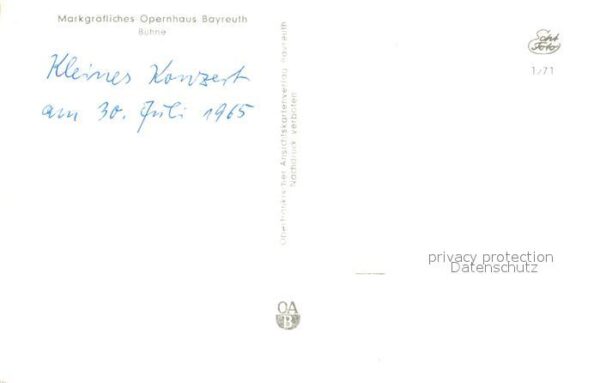 Markgräfliches Opernhaus Bayreuth
Bühne
Kleines Konzert
am 30. Juli 1965
Oberfränkischer Ansichtskartenverlag Bayreuth
Nachdruck verboten
OA
B
Echt
Foto
1/71
privacy protection
Datenschutz